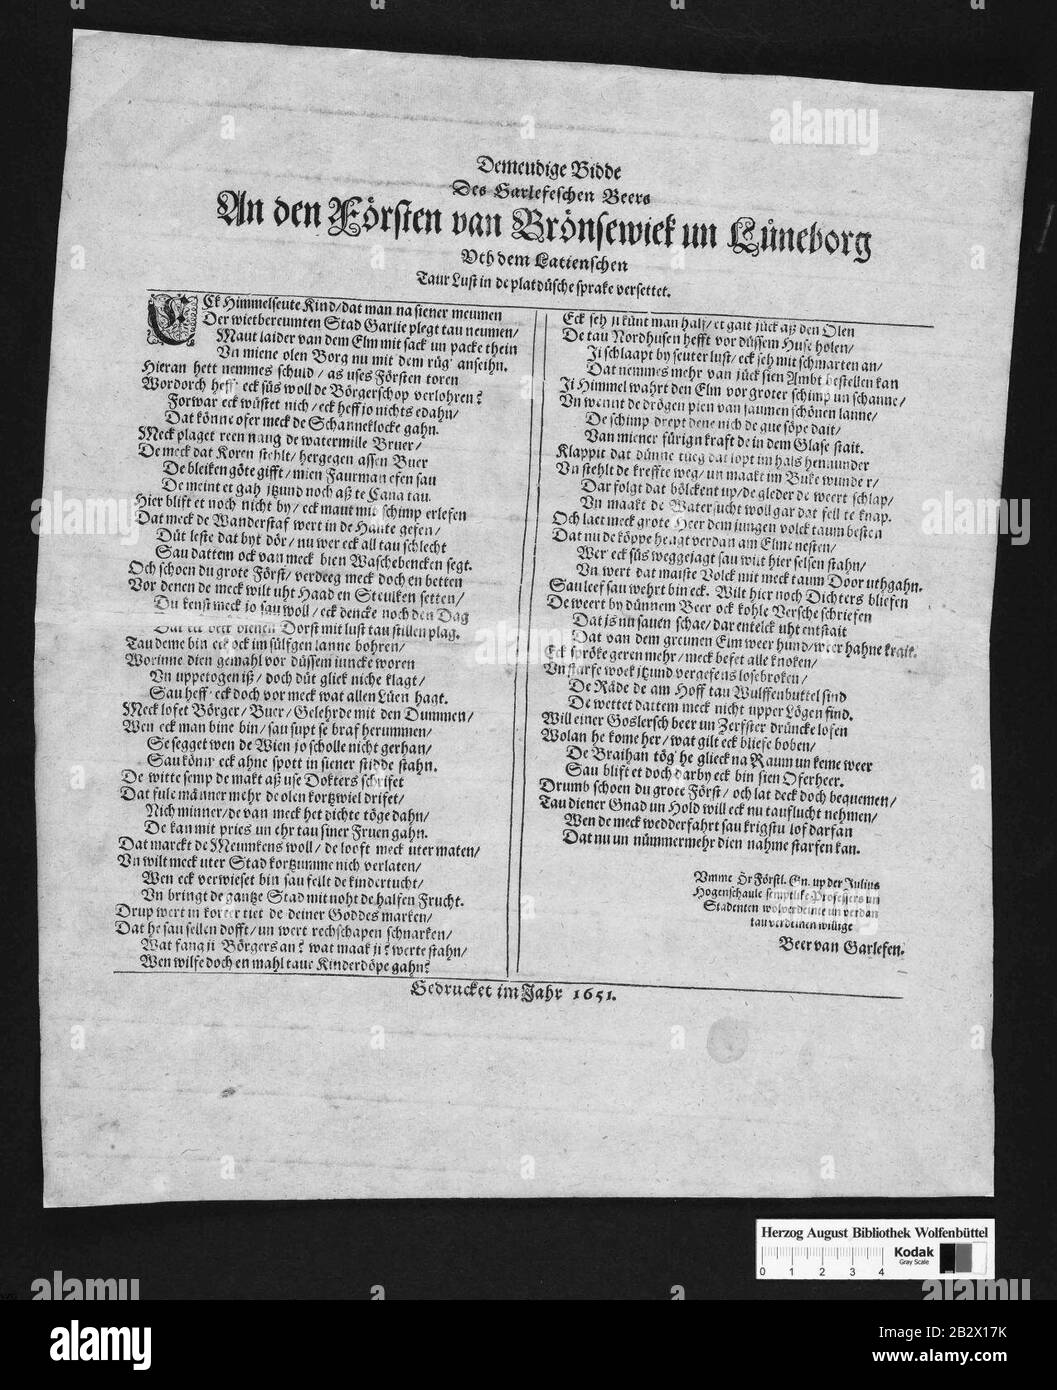 Demeudige Bidde
Des Garlefeschen Beers
An den Försten van Brönsewiek un Lüneborg
Vth dem Latienschen
Taur Lust in de platdüsche sprake versettet.
ECk Himmelseute Kind/ dat man na siener meumen
Der wietbereumten Stad Garlie plegt tau neumen/
Maut laider van dem Elm mit sack un packe thein
Vn miene olen Borg nu mit dem rüg' anseihn.
Hieran hett nemmes schuld/ as uses Försten toren
Wordorch heff' eck süs woll de Börgerschop verlohren?
Forwar eck wüstet nich/ eck heff jo nichts edahn/
Dat könne ofer meck de Schanneklocke gahn.
Meck plaget reen nang de watermille Bruer/
De meck dat Koren stehlt/ hergegen assen Buer
De bleiken göte gifft/ mien Faurman efen sau
De meint et gah jtzund noch aß te Cana tau.
Hier blift et noch nicht by/ eck maut mit schimp erlefen
Dat meck de Wanderstaf wert in de Hante gefen/
Düt leste dat byt dör/ nu wer eck all tau schlecht
Sau dattem ock van meck bien Waschebencken segt.
Och schoen du grote Först/ verdeeg meck doch en betten
Vor denen de meck wilt uht Haad en Steulken setten/
Du kenst meck jo sau woll/ eck dencke noch den Dag
Dorst mit lust tau stillen plag.
Tau deme bin eck ock im sülfgen lanne bohren/
Worinne dien gemahl vor düssem juncke woren
Vn uppetogen iß/ doch düt gliek niche klagt/
Sau heff' eck doch vor meck wat allen Lüen hagt.
Meck lofet Börger/ Buer/ Gelehrde mit den Dummen/
Wen eck man bine bin/ sau supt se braf herummen/
Se segget wen de Wien jo scholle nicht gerhan/
Sau könn' eck ahne spott in siener stidde stahn.
De witte semp de makt aß use Dokters schrifet
Dat fule männer mehr de olen kortzwiel drifet/
Nich minner/ de van meck het dichte töge dahn/
De kan mit pries un ehr tau siner Fruen gahn.
Dat marckt de Meumkens woll/ de loeft meck uter maten/
Vn wilt meck uter Stad kortzumme nich verlaten/
Wen eck verwieset bin sau feilt de kindertucht/
Vn bringt de gantze Stad mit noht de halfen Frucht.
Drup wert in korter tiet de deiner Goddes marken/
Dat he sau sellen dofft/ un wert rechschapen schnarken/
Wat fang ji Börgers an? wat maak ji? werte stahn/
Wen wilse doch en mahl taur Kinderdöpe gahn?
Eck seh ji künt man half/ et gait jück aß den Olen
De tau Nordhusen hefft vor düssem Huse holen/
Ji schlaapt by seuter lust/ eck seh mit schmarten an/
Dat nemmes mehr van jück sien Ambt bestellen kan
Ji Himmel wahrt den Elm vor groter schimp un schanne/
Vn wennt de drögen pien van jaumen schönen lanne/
De schimp drept dene nich de gue söpe dait/
Van miener fürign kraft de in dem Glase stait.
Klappit dat dünne tüeg dat lopt im hals hennunder
Vn stehlt de kreffte weg/ un maakt im Buke wunder/
Dar folgt dat bölckent up/ de gleder de weert schlap/
Vn maakt de Watersucht woll gar dat fell te knap.
Och laet meck grote Heer dem jungen volck taum besten
Dat nu de köppe heagt verdan am Elme nesten/
Wer eck süs weggejagt sau wilt hier selsen stahn/
Vn wert dat maiste Volck mit meck taum Door uthgahn.
Sau leef sau wehrt bin eck. Wilt hier noch Dichters bliefen
De weert by dünnem Beer ock kohle Versche schriefen
Dat js nu sauen schae/ dar entelck uht entstait
Dat van dem greunen Elm weer hund/ weer hahne krait.
Eck spröke geren mehr/ meck befet alle knoken/
Vn starfe woek jtzund vergefens losebroken/
De Räde de am Hoff tau Wulffenbuttel sind
De wettet dattem meck nicht upper Lögen find.
Will einer Goslersch beer un Zerfster drüncke lofen
Wolan he kome her/ wat gilt eck bliefe boben/
De Braihan tög' he glieck na Raum un keme weer
Sau blift et doch darby eck bin sien Oferheer.
Drumb schoen du grote Först/ och lat deck doch bequemen/
Tau diener Gnad un Hold will eck nu tauflucht nehmen/
Wen de meck wedderfahrt sau krigstu lof darfan
Dat nu un nümmermehr dien nahme starfen kan.
Vmme Hr Förstl. Gn. up der Julius
Hogenschaule semptlike Professers un
Stadenten wolverdeinte un verdan
tau verdeinen willige
Beer van Garlefen.
Gedrucket im Jahr 1651.
Herzog August Bibliothek Wolfenbüttel
Kodak
Gray Scale
0 1 2 3 4
alamy
Image ID: 2B2X17K
www.alamy.com